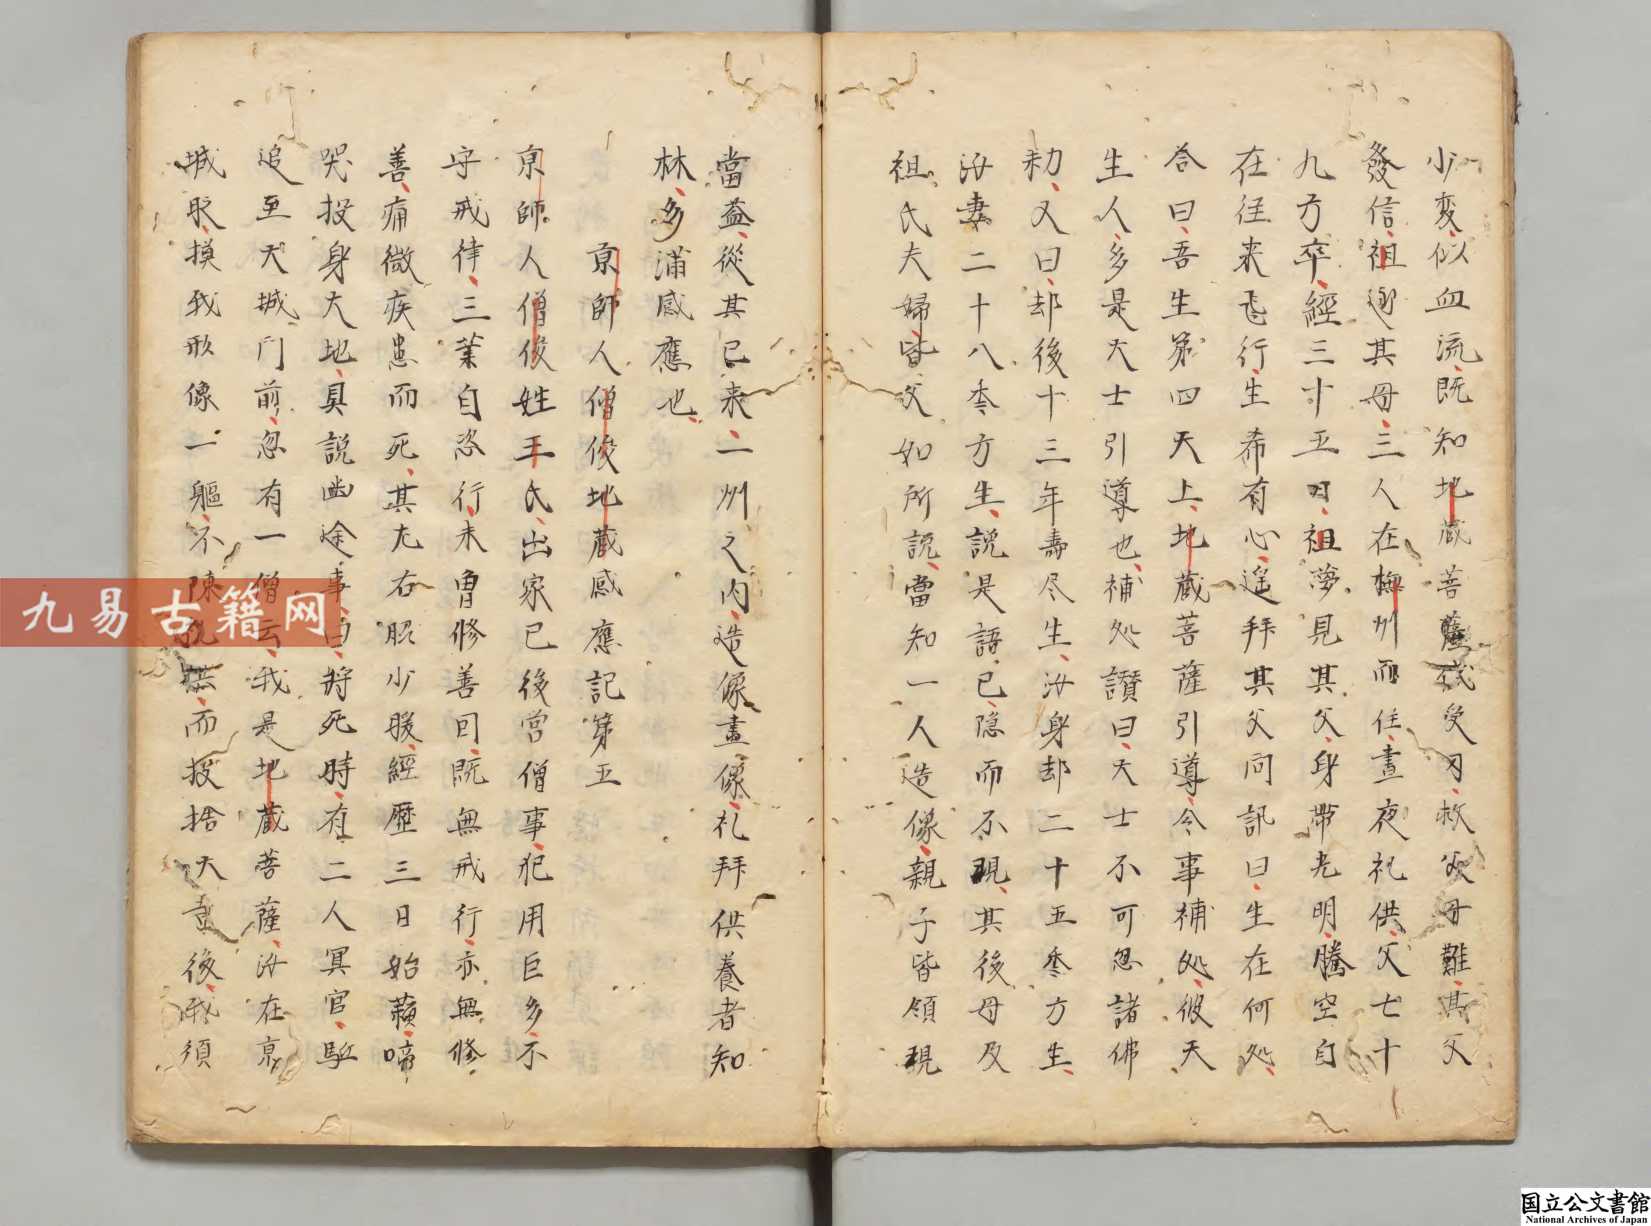 少変似血流既知地蔵菩薩代受刃救父母難其父
發信祖逊其母三人在梅州而住畫夜礼供父七十
九方卒經三十五日祖夢見其父身帶光明騰空自
在往来飛行生希有心遥拜其父同訊曰生在何処
答曰吾生第四天上地蔵菩薩引導今事補処彼天
生人多是大士引導也補処讃曰大士不可忽諸佛
勅又曰却後十三年壽尽生汝身却二十五季方生
汝妻二十八季方生說是語已隐而不現其後母及
祖氏夫婦皆父如所說當知一人造像親子皆領現
當益從其已来二州之内造像畫像礼拜供養者知
林多蒲感應也
京師人僧俊地蔵感應記第五
京師人僧俊姓王氏出家已後営僧事犯用巨多不
守戒律三業自恣行未曽修善因既無戒行亦無修
善痛微疾患而死其左右脇少暖經歷三日始蘇啼
哭投身大地具說幽途事曰將死時有二人冥官駈
追至大城門前忽有一僧云我是地蔵菩薩汝在京
城時摸我形像一軀不陳供而投捨大重後我須
九易古籍网
国立公文書館
National Archives of Japan